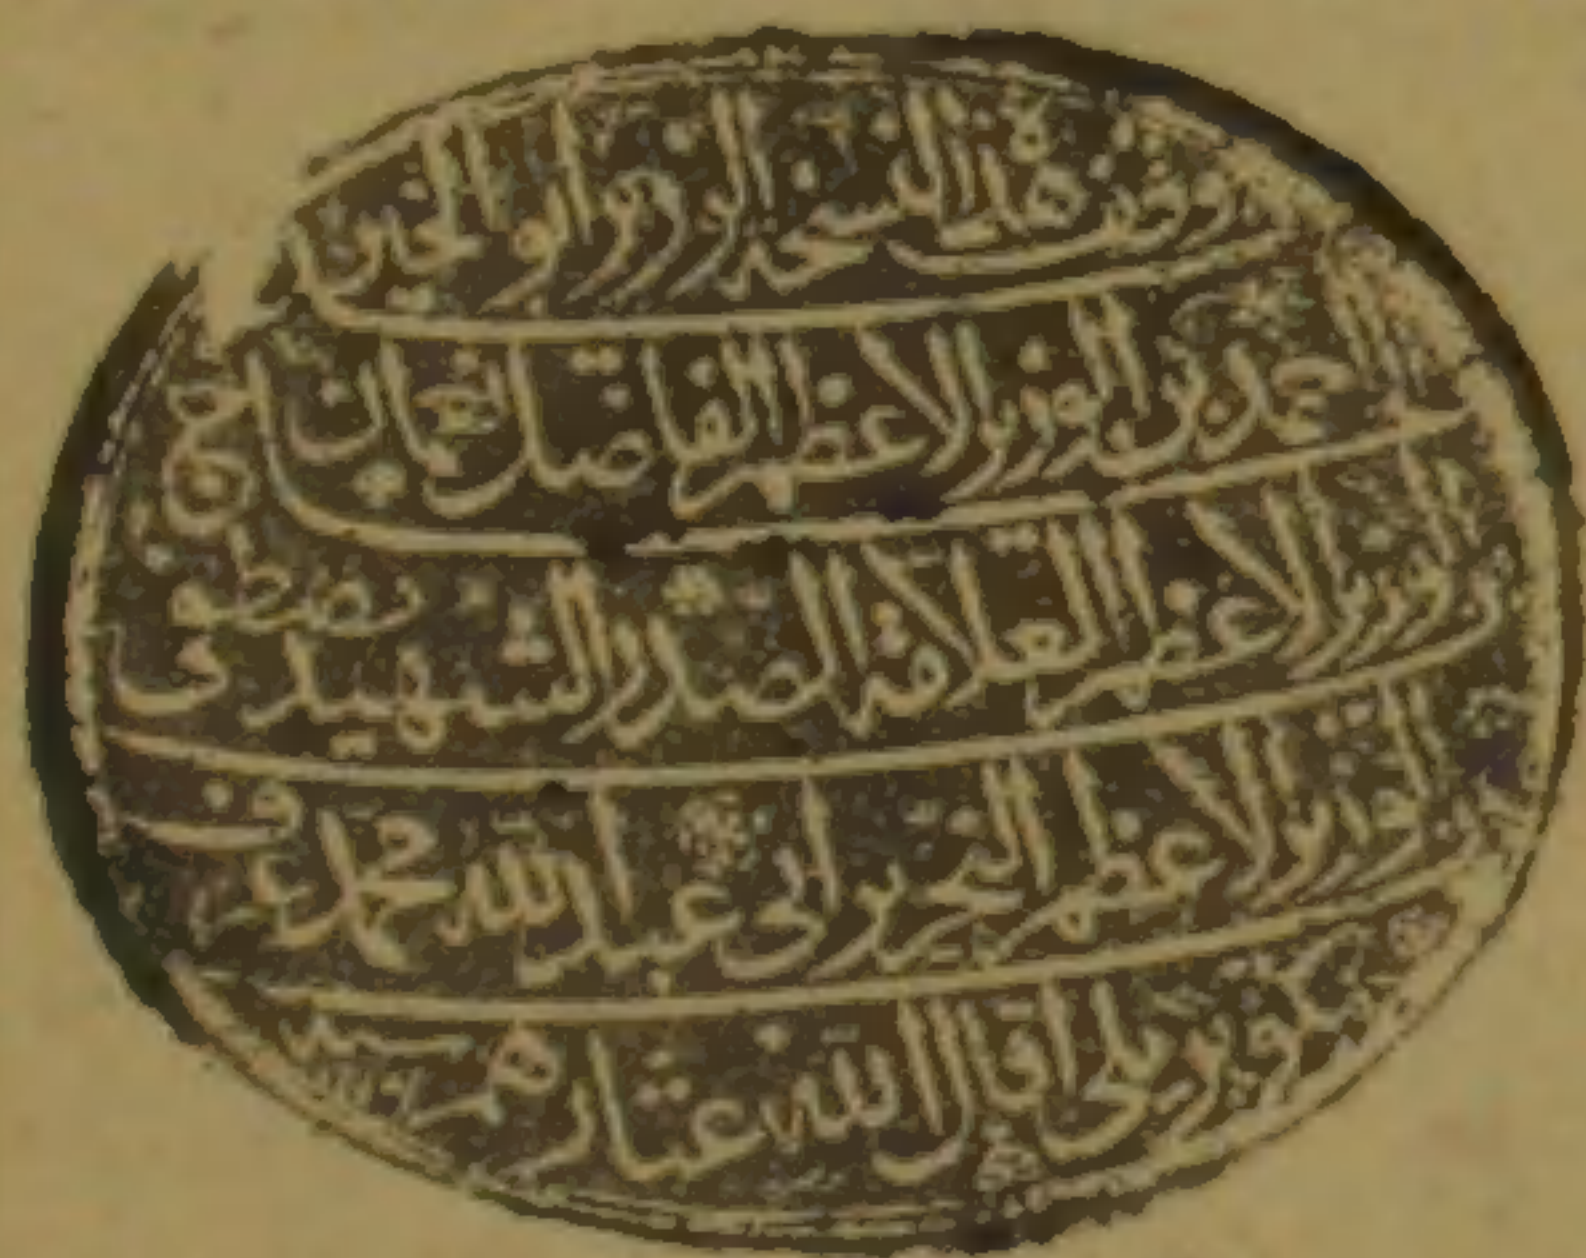 وقف هذه النسخة الوزير أبو الخير احمد بن
الوزير الاعظم الفاضل نعمان بن
الوزير الاعظم العلامة الصدر الشهيد مصطفى
الوزير الاعظم النحرير ابي عبد الله محمد عرف
بكوپريلي اقال الله عثارهم